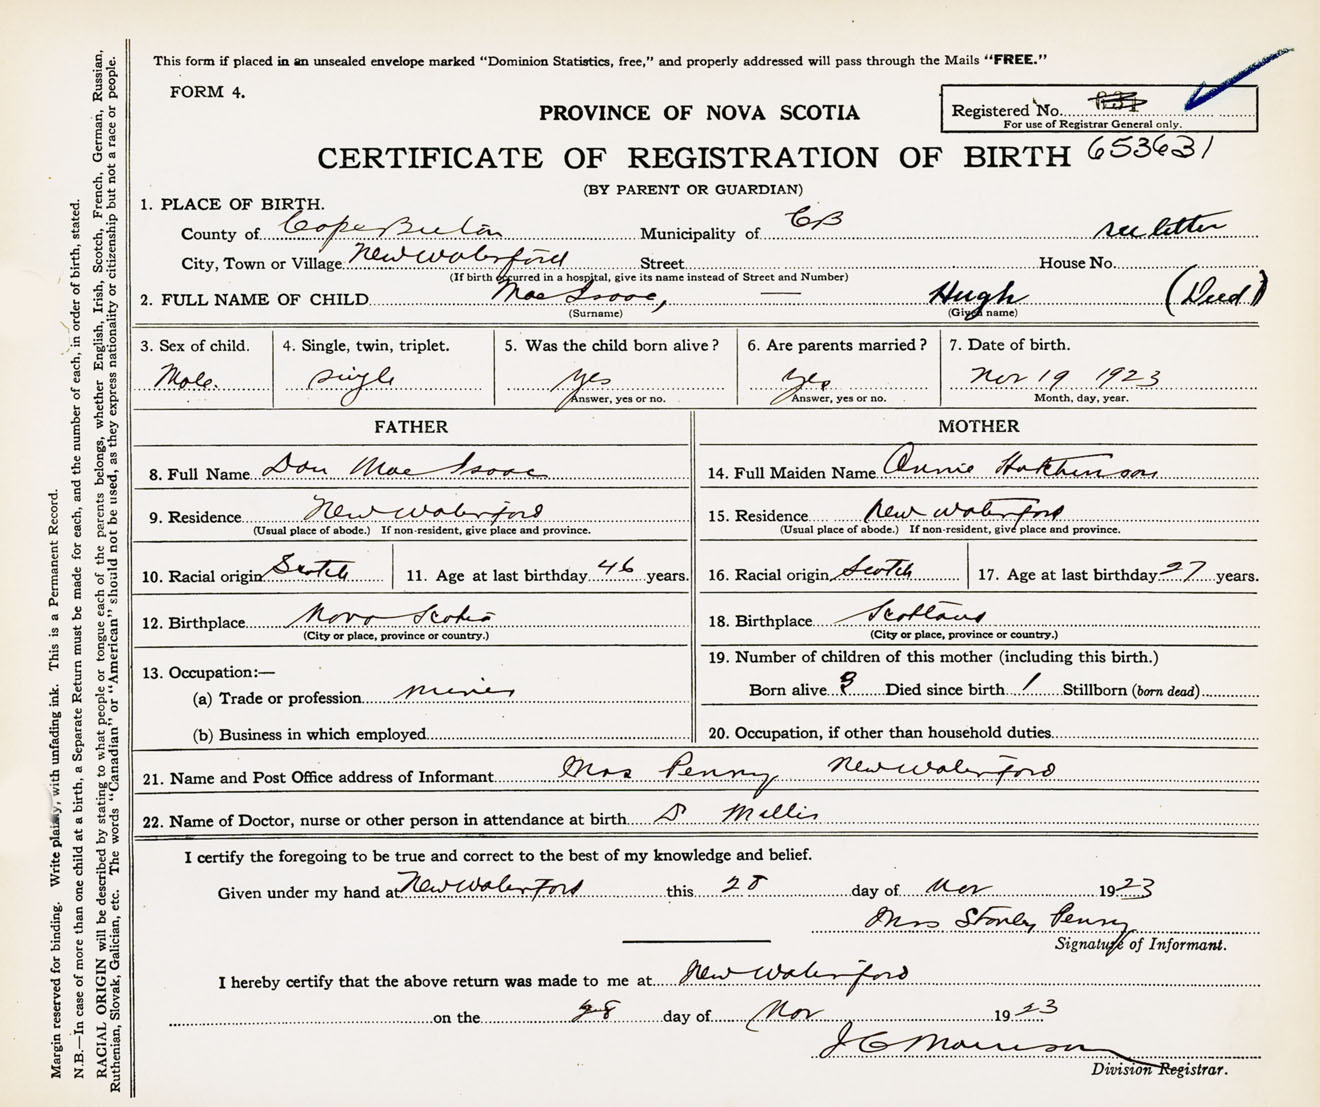 This form if placed in an unsealed envelope marked "Dominion Statistics, free," and properly addressed will pass through the Mails "FREE."
FORM 4.
PROVINCE OF NOVA SCOTIA
Registered No.
For use of Registrar General only.
CERTIFICATE OF REGISTRATION OF BIRTH 653631
(BY PARENT OR GUARDIAN)
1. PLACE OF BIRTH.
County of Cape Breton Municipality of CB see letter
City, Town or Village New Waterford Street House No.
(If birth occurred in a hospital, give its name instead of Street and Number)
2. FULL NAME OF CHILD Mac Isaac, — Hugh (Died)
(Surname) (Given name)
3. Sex of child. 4. Single, twin, triplet. 5. Was the child born alive? 6. Are parents married? 7. Date of birth.
Male. single yes yes Nov 19 1923
Answer, yes or no. Answer, yes or no. Month, day, year.
FATHER MOTHER
8. Full Name Dan Mac Isaac 14. Full Maiden Name Annie Hutchinson
9. Residence New Waterford 15. Residence New Waterford
(Usual place of abode.) If non-resident, give place and province. (Usual place of abode.) If non-resident, give place and province.
10. Racial origin Scotch 11. Age at last birthday 46 years. 16. Racial origin Scotch 17. Age at last birthday 27 years.
12. Birthplace Nova Scotia 18. Birthplace Scotland
(City or place, province or country.) (City or place, province or country.)
13. Occupation:— 19. Number of children of this mother (including this birth.)
(a) Trade or profession miner Born alive Died since birth 1 Stillborn (born dead)
(b) Business in which employed 20. Occupation, if other than household duties
21. Name and Post Office address of Informant Mrs Penny New Waterford
22. Name of Doctor, nurse or other person in attendance at birth Millis
I certify the foregoing to be true and correct to the best of my knowledge and belief.
Given under my hand at New Waterford this 28 day of Nov 1923
Mrs Stanley Penny
Signature of Informant.
I hereby certify that the above return was made to me at New Waterford
on the 28 day of Nov 1923
J C Morrison
Division Registrar.
Margin reserved for binding. Write plainly, with unfading ink. This is a Permanent Record.
N.B.—In case of more than one child at a birth, a Separate Return must be made for each, and the number of each, in order of birth, stated.
RACIAL ORIGIN will be described by stating to what people or tongue each of the parents belongs, whether English, Irish, Scotch, French, German, Russian,
Ruthenian, Slovak, Galician, etc. The words "Canadian" or "American" should not be used, as they express nationality or citizenship but not a race or people.